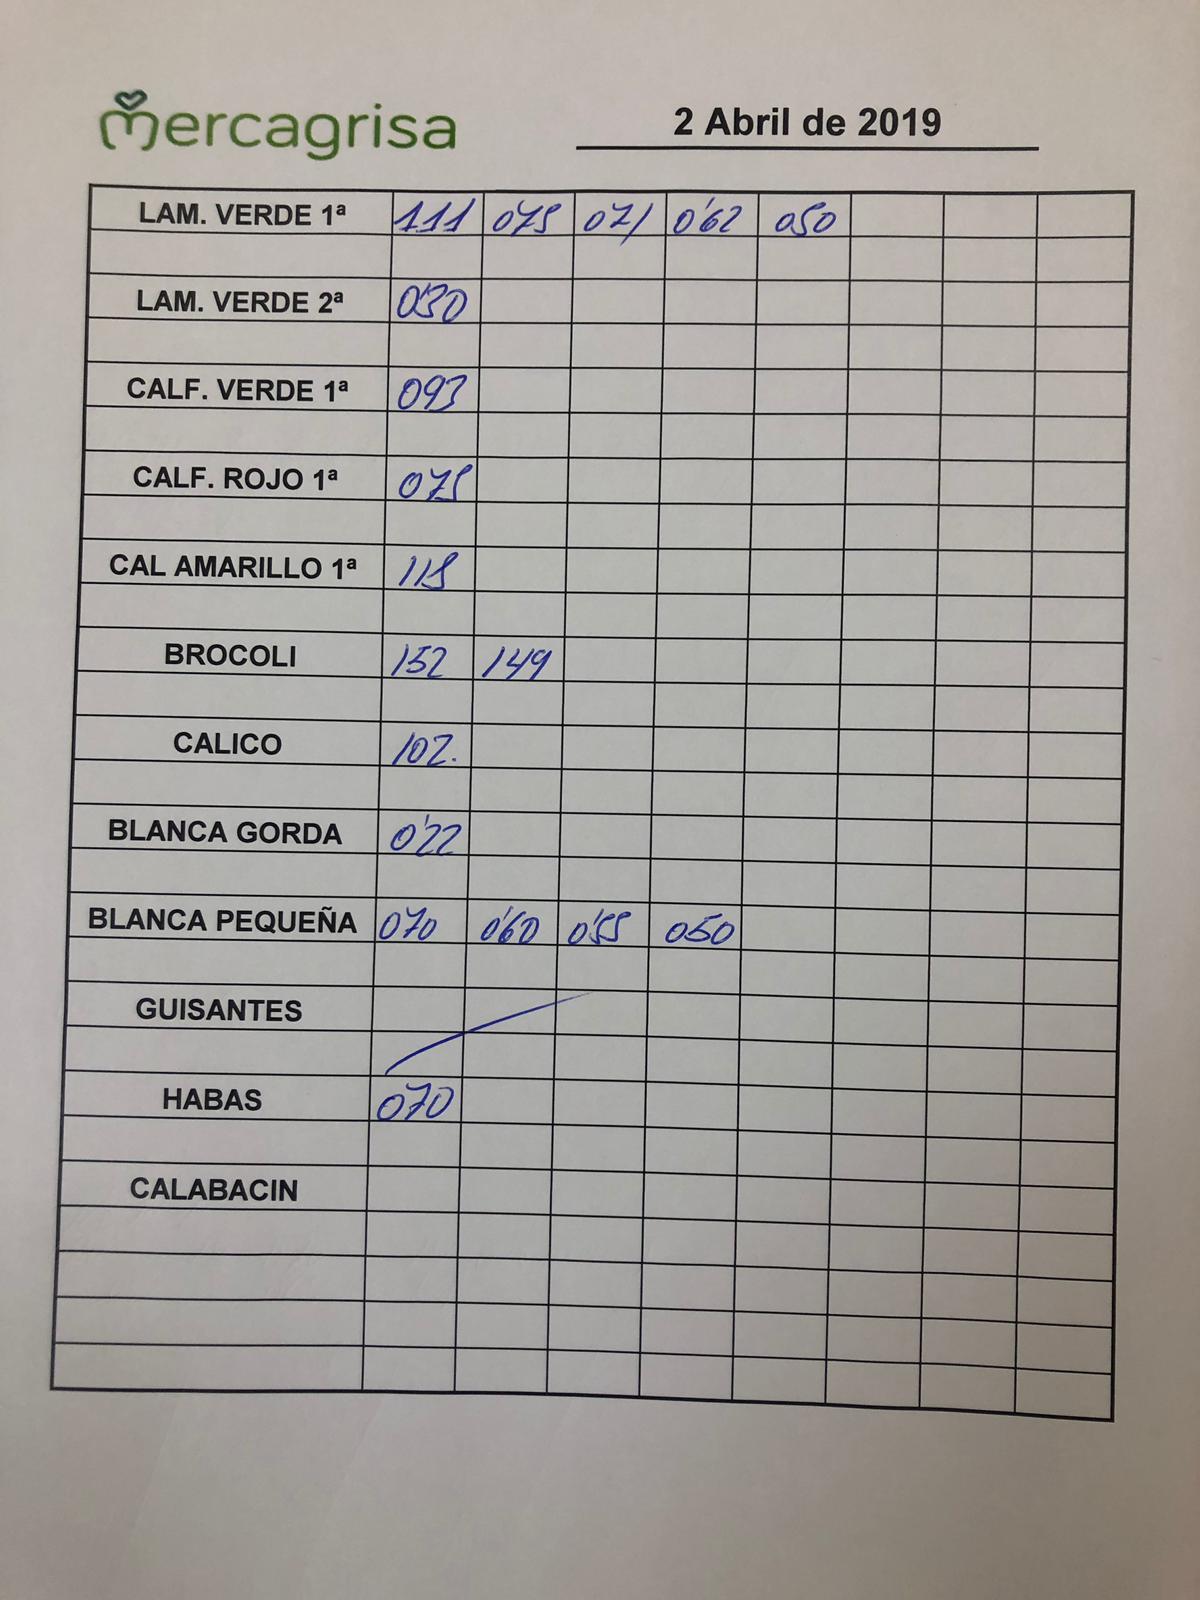 mercagrisa
2 Abril de 2019
LAM. VERDE 1ª 111 075 071 0'62 050
LAM. VERDE 2ª 0'30
CALF. VERDE 1ª 093
CALF. ROJO 1ª 075
CAL AMARILLO 1ª 115
BROCOLI 152 149
CALICO 102.
BLANCA GORDA 0'22
BLANCA PEQUEÑA 070 0'60 0'55 050
GUISANTES
HABAS 070
CALABACIN